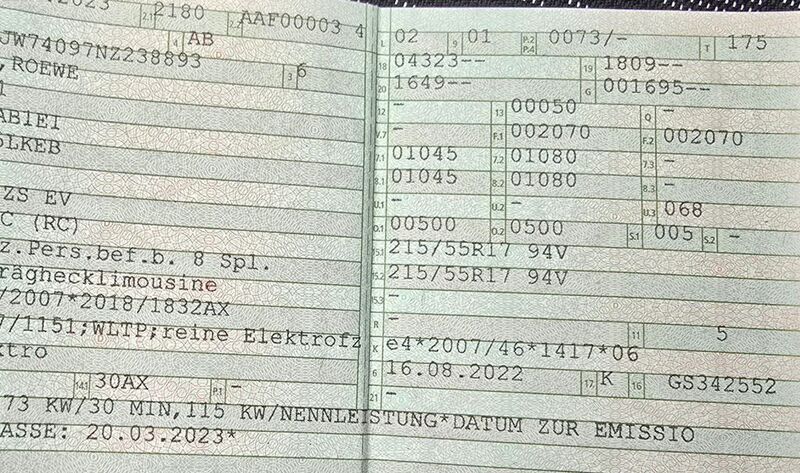 2023 2.1 2180 2.2 AAF00003 4
JW74097NZ238893 4 AB
,ROEWE 3 6
1
AB1EI
5LKEB
ZS EV
C (RC)
z.Pers.bef.b. 8 Spl.
räghecklimousine
/2007*2018/1832AX
7/1151;WLTP;reine Elektrofz
ktro
14.1 30AX P.1 -
L 02 9 01 P.2 P.4 0073/- T 175
18 04323-- 19 1809--
20 1649-- G 001695--
12 - 13 00050 Q -
V.7 - F.1 002070 F.2 002070
7.1 01045 7.2 01080 7.3 -
8.1 01045 8.2 01080 8.3 -
U.1 - U.2 - U.3 068
O.1 00500 O.2 0500 S.1 005 S.2 -
15.1 215/55R17 94V
15.2 215/55R17 94V
15.3 -
R - 11 5
K e4*2007/46*1417*06
6 16.08.2022 17 K 16 GS342552
21 -
73 KW/30 MIN,115 KW/NENNLEISTUNG*DATUM ZUR EMISSIO
ASSE: 20.03.2023*